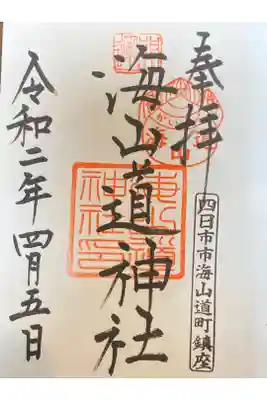 奉拝
四日市市海山道町鎮座
海山道神社
海山道神社印
令和二年四月五日